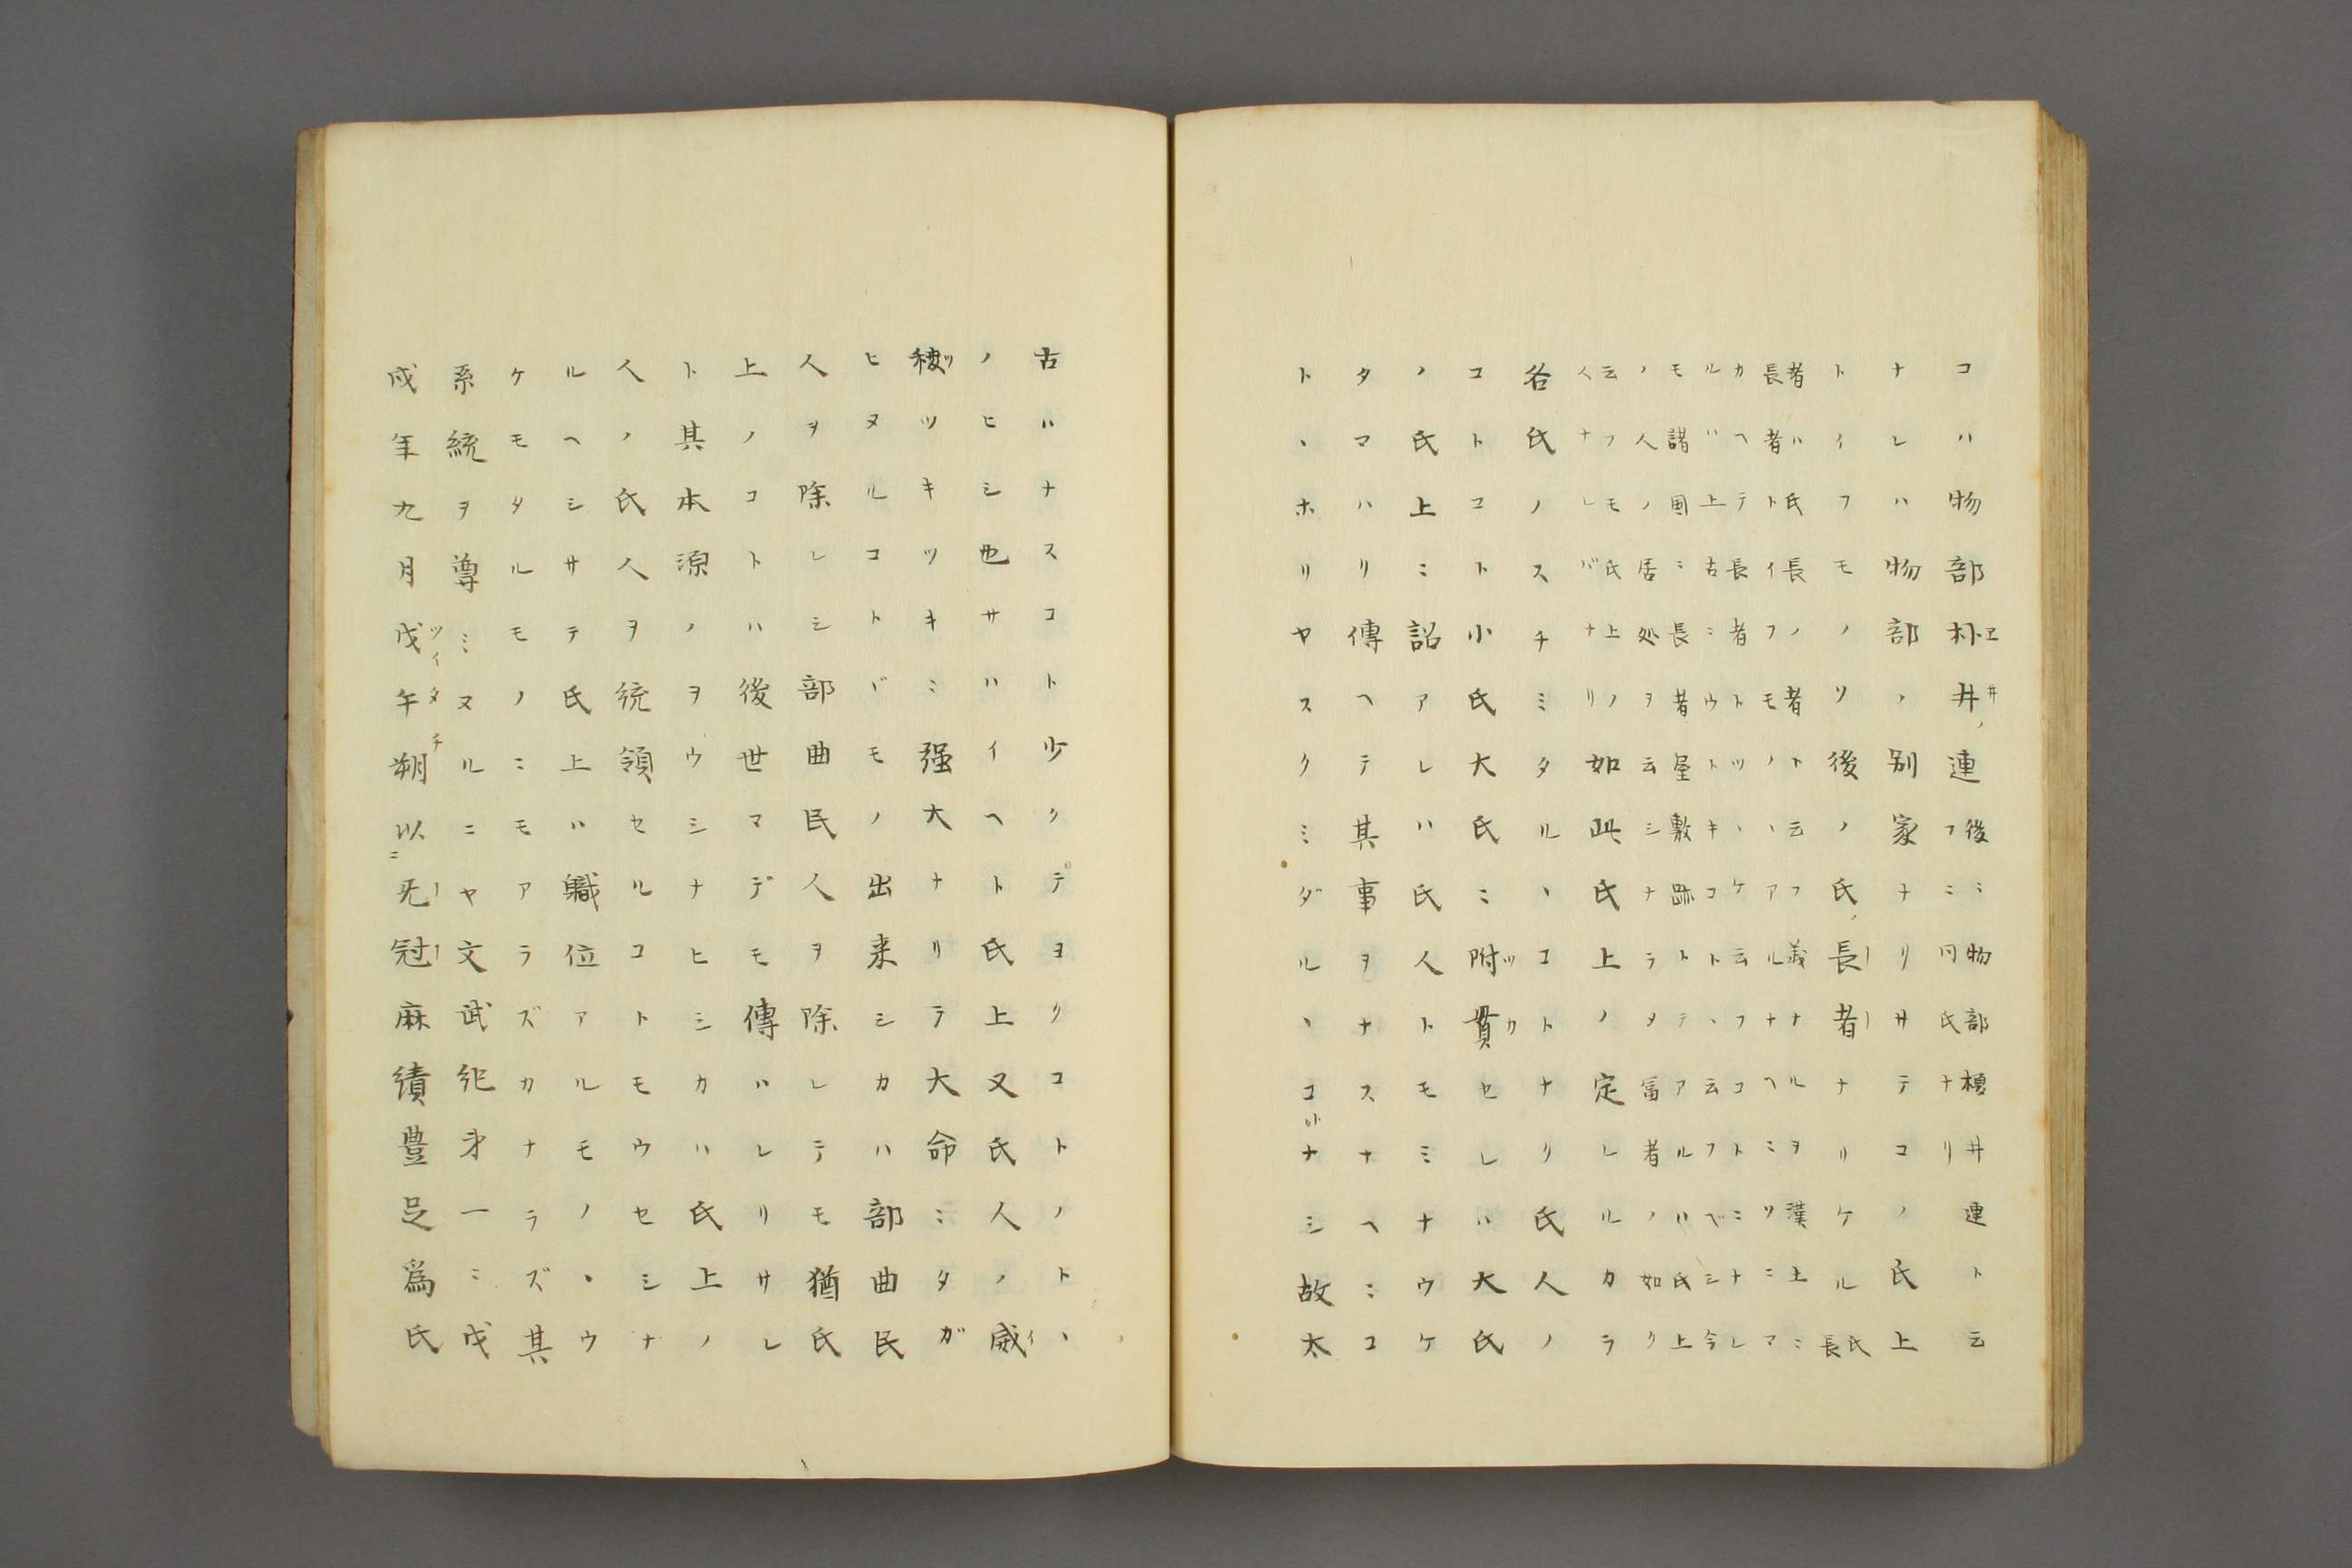 コハ物部朴井連後ニ物部榎井連ト云フニ同氏ナリ
ナレハ物部ノ別家ナリサテコノ氏上
トイフモノソ後ノ氏長者ナリケル氏長
者ハ氏長ノ者ト云フ義ナルヲ漢土ニ
長者トイフモノヽアルナヘニソニマ
カヘテ長者トツヽケ云フコトニナレ
ルハ上古ニウトキコトヽ云フベシ今
モ諸国ニ長者屋敷跡トテアルハ氏上
ノ人ノ居処ヲ云シナラメ富者ノ如ク
云フモ氏上ノ
人ナレバナリ
如此氏上ノ定レルカラ
各氏ノスチミタルヽコトナリ氏人ノ
コトコト小氏大氏ニ附貫セレハ大氏
ノ氏上ニ詔アレハ氏人トモミナウケ
タマハリ傳ヘテ其事ヲナスナヘニコ
トヽホリヤスクミダルヽコナシ故太
古ハナスコト少クテヨクコトノトヽ
ノヒシ也サハイヘト氏上又氏人ノ威
稜ツキツキニ强大ナリテ大命ニタガ
ヒヌルコトドモノ出来シカハ部曲民
人ヲ除レシ部曲民人ヲ除レテモ猶氏
上ノコトハ後世マデモ傳ハレリサレ
ト其本源ノヲウシナヒシカハ氏上ノ
人ノ氏人ヲ統領セルコトモウセシナ
ルヘシサテ氏上ハ職位アルモノヽウ
ケモタルモノニモアラズカナラズ其
系統ヲ尊ミヌルニヤ文武紀才一ニ戊
戌年九月戊午朔以无冠麻績豊足爲氏